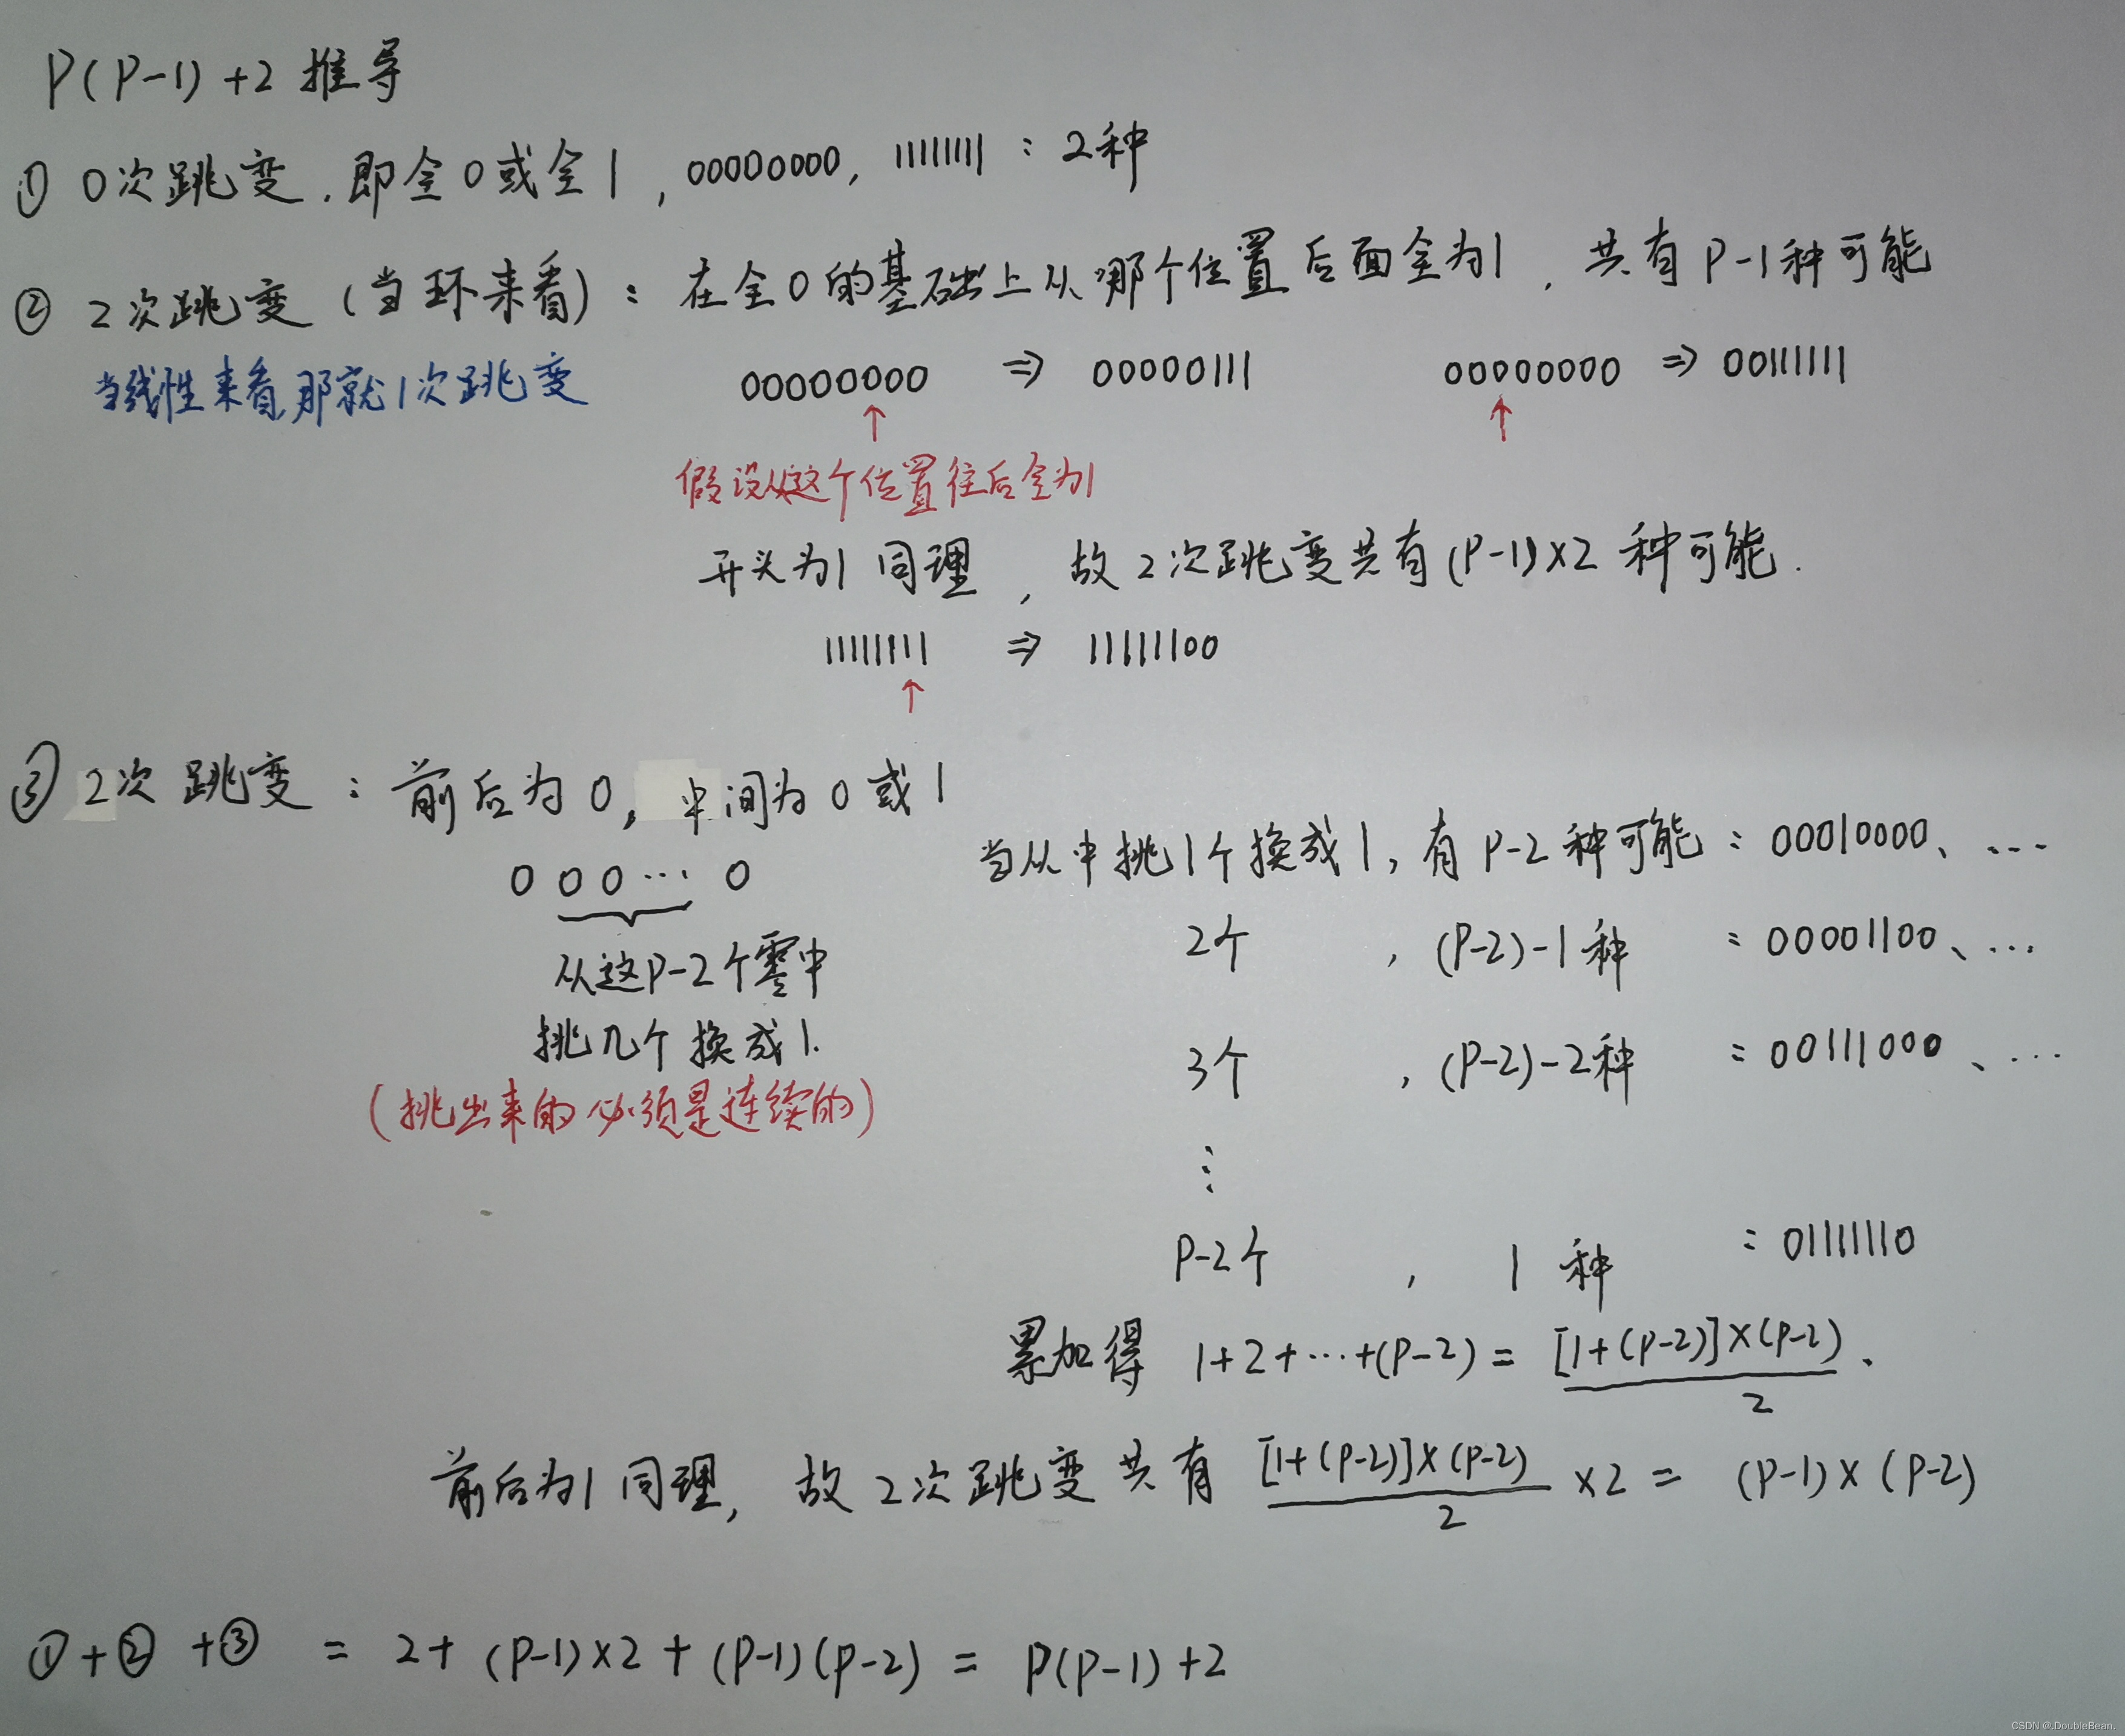 P(P-1)+2 推导
① 0次跳变.即全0或全1,00000000,11111111:2种
② 2次跳变(当环来看):在全0的基础上从哪个位置后面全为1,共有P-1种可能
当线性来看,那就1次跳变
00000000 ⇒ 00000111 00000000 ⇒ 00111111
↑ ↑
假设从这个位置往后全为1
开头为1同理,故2次跳变共有(P-1)×2种可能.
11111111 ⇒ 11111100
↑
③ 2次跳变:前后为0,中间为0或1
0 0 0 ⋯ 0
从这P-2个零中
挑几个换成1.
(挑出来的必须是连续的)
当从中挑1个换成1,有P-2种可能:00010000、…
2个,(P-2)-1种:00001100、…
3个,(P-2)-2种:00111000、…
⋮
P-2个,1种:01111110
累加得 1+2+⋯+(P-2)=[1+(P-2)]×(P-2)/2.
前后为1同理,故2次跳变共有 [1+(P-2)]×(P-2)/2 ×2=(P-1)×(P-2)
①+②+③=2+(P-1)×2+(P-1)(P-2)=P(P-1)+2
CSDN @.DoubleBean.